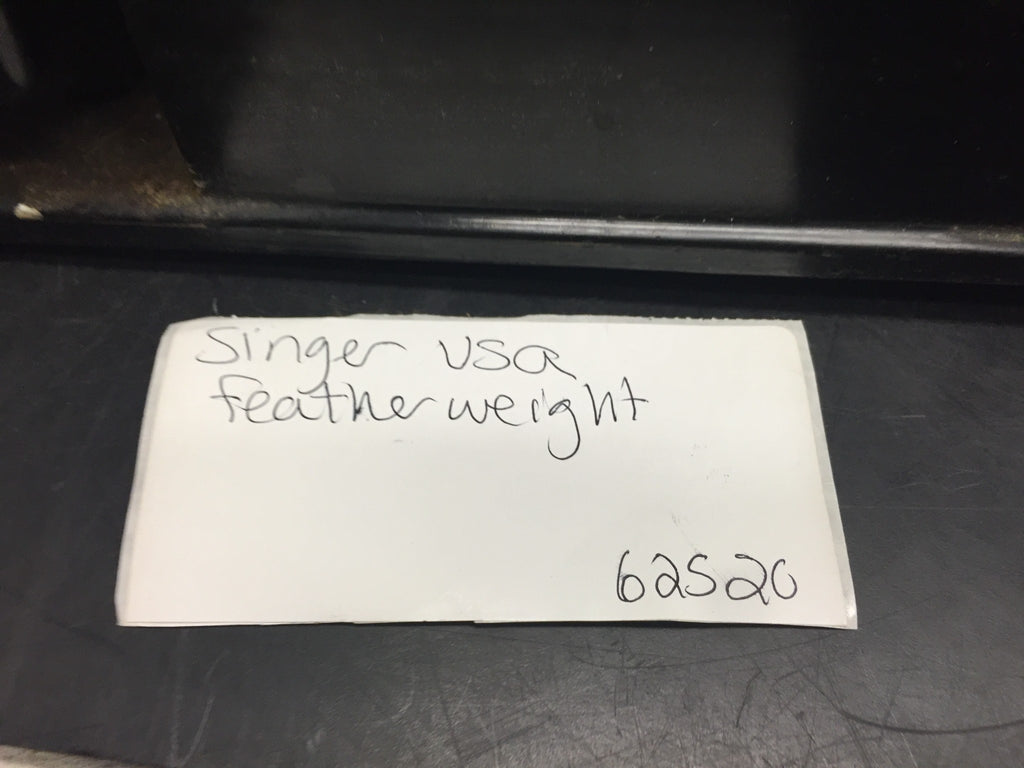 Singer USA
featherweight
62520